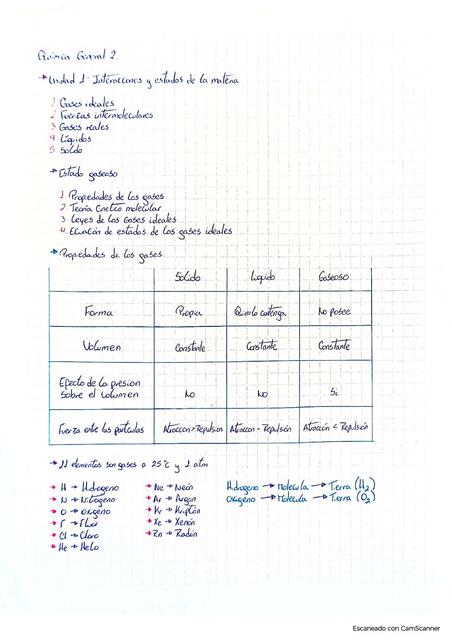 Química General 2.
→ Unidad 1: Interacciones y estados de la materia
1 Gases ideales
2 Fuerzas intermoleculares
3 Gases reales
4 Líquidos
5. Sólido
→ Estado gaseoso
1 Propiedades de los gases
2 Teoría Cinético molecular
3 Leyes de los Gases ideales
4. Ecuación de estados de los gases ideales
→ Propiedades de los gases
Sólido Líquido Gaseoso
Forma Propia Quien lo contenga No posee
Volumen Constante Constante Constante
Efecto de la presion
sobre el volumen No No Si
Fuerza entre las partículas Atracción > Repulsión Atracción = Repulsión Atracción < Repulsión
→ 11 elementos son gases a 25°C y 1 atm
→ H → Hidrogeno → Ne → Neón Hidrogeno → Molécula → Tierra (H2)
→ N → Nitrógeno → Ar → Argon Oxigeno → Molécula → Tierra (O2)
→ O → Oxigeno → Kr → Kriptón
→ F → Fluor → Xe → Xenón
→ Cl → Cloro → Rn → Radón
→ He → Helio
Escaneado con CamScanner